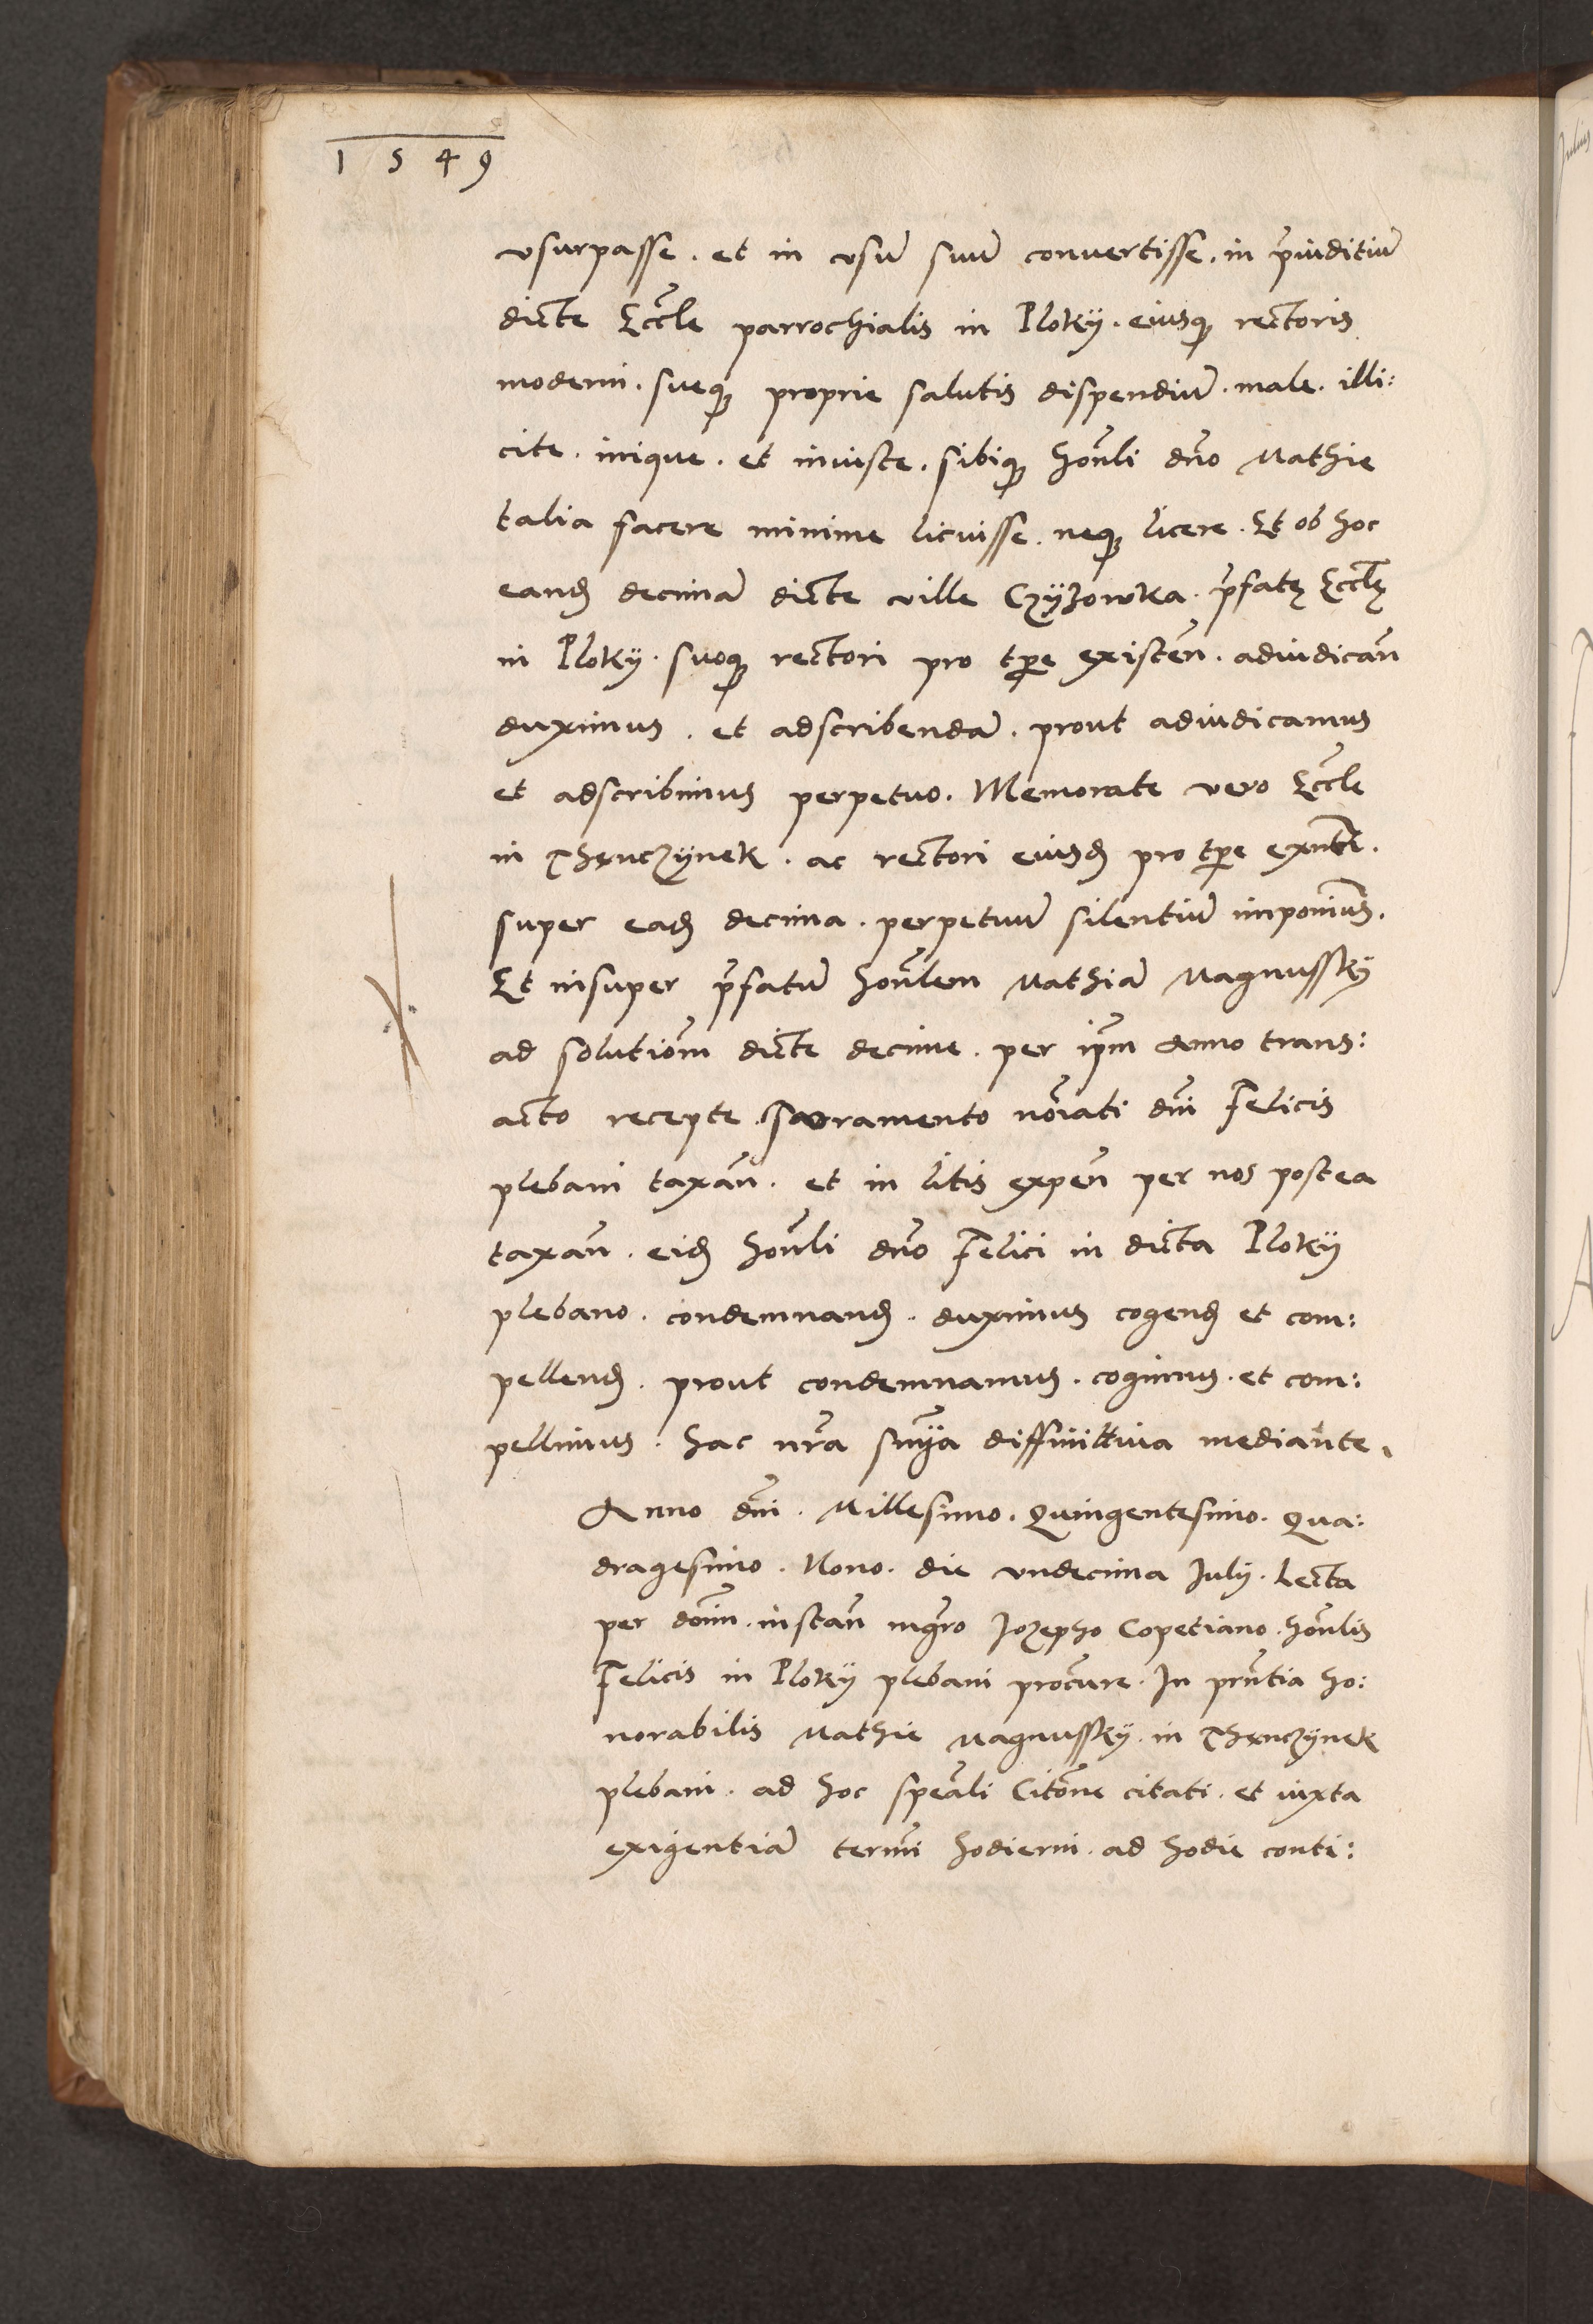 1549
vsurpasse . et in vsū suū conuertisse . in p̄iuditiū
dicte Eccl̄e parrochialis in Ploky . eiusq; rectoris
moderni . sueq; proprie salutis dispendiū . male . illi:
cite . inique . et iniuste . sibiq; hon̄li dn̄o Mathie
talia facere minime licuisse . neq; licere . Et ob hoc
eand; decimā dicte ville Czyżowka . p̄fatę Eccl̄ę
in Ploky . suoq; rectori pro tp̄e existen̄ . adiudican̄
duximus . et adscribendā . prout adiudicamus
et adscribimus perpetuo . Memorate vero Eccl̄e
in Thęnczynek . ac rectori eiusd; pro tp̄e exn̄ti .
super ead; decima . perpetuū silentiū imponim̄us .
Et insuper p̄fatū hon̄lem Mathiā Magnussky
ad solutiōm dicte decime . per ip̄m Anno trans:
acto recepte . sacramento nōiati dn̄i Felicis
plebani taxan̄ . et in litis expen̄ per nos postea
taxan̄ . eid; hon̄li dn̄o Felici in dicta Ploky
plebano . condemnand; . duximus cogend; et com:
pellend; . prout condemnamus . cogimus . et com:
pellimus . hac nr̄a sn̄ya diffinittiua mediante .
Anno dn̄i . Millesimo . Quingentesimo . Qua:
dragesimo . Nono . die vndecima July . Lecta
per dōim . instan̄ mgr̄o Jozepho Copetiano . hon̄lis
Felicis in Ploky plebani procūre . In prn̄tia ho:
norabilis Mathie Magnussky . in Thęnczynek
plebani . ad hoc speāli Citōne citati . et iuxta
exigentiā termi̅ hodierni . ad hodie conti: